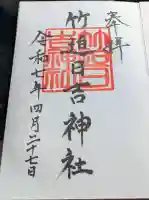 奉拝
竹迫日吉神社
令和七年四月二十七日